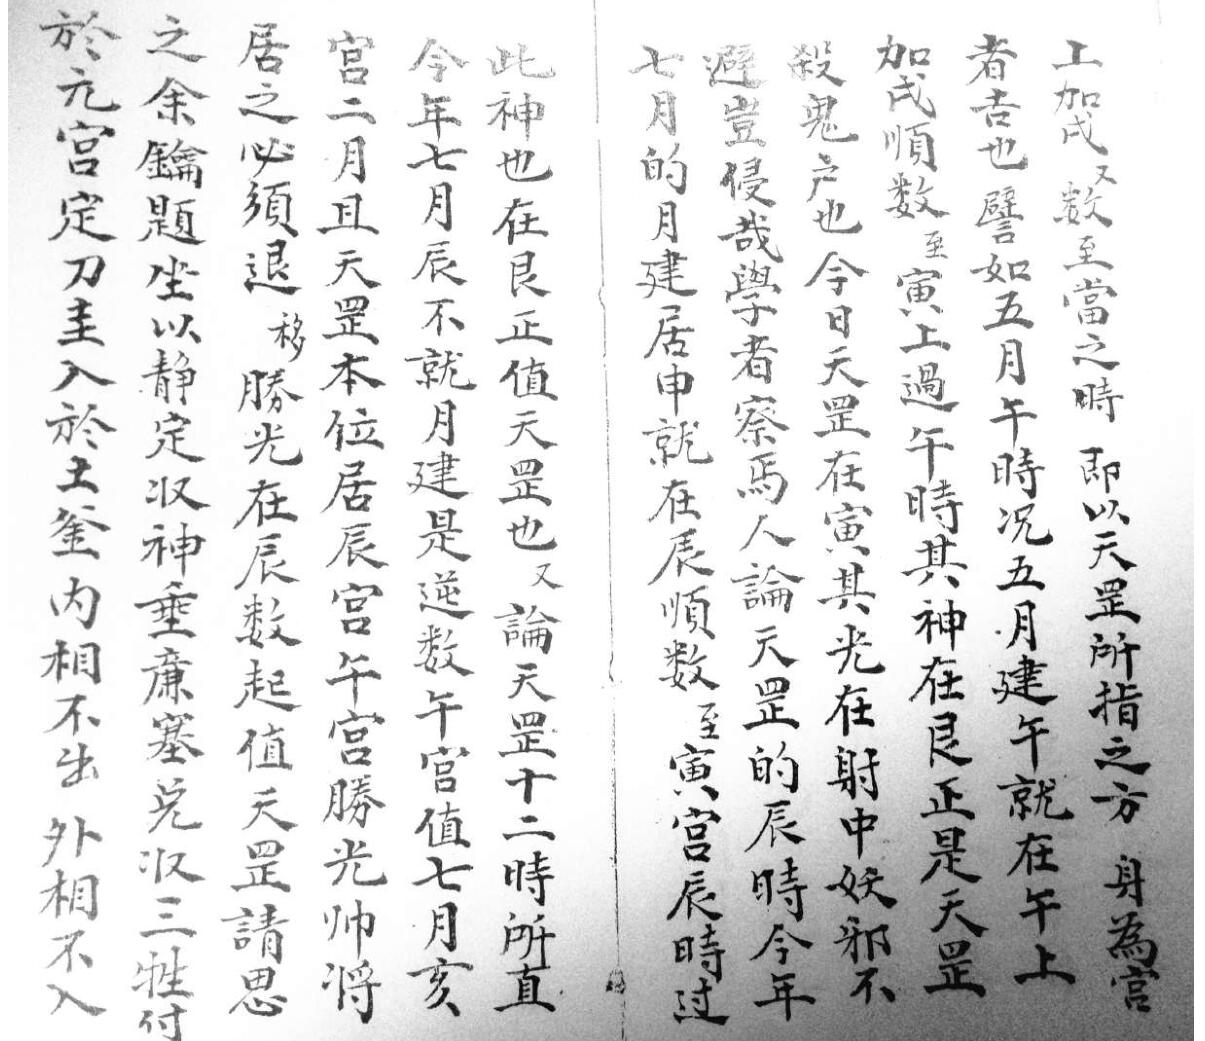 上加戌又数至當之時即以天罡所指之方身為宫
者吉也譬如五月午時况五月建午就在午上
加戌順数至寅上過午時其神在艮正是天罡
殺鬼户也今日天罡在寅其光在射中妖邪不
避豈侵哉學者察焉人論天罡的辰時今年
七月的月建居申就在辰順数至寅宫辰時过
此神也在艮正值天罡也又論天罡十二時所直
今年七月辰不就月建是逆数午宫值七月亥
宫二月且天罡本位居辰宫午宫勝光帅将
居之必須退移勝光在辰数起值天罡請思
之余鑰題坐以静定収神垂廉塞兑収三牲付
於亢宫定刀圭入於土釜内相不出外相不入